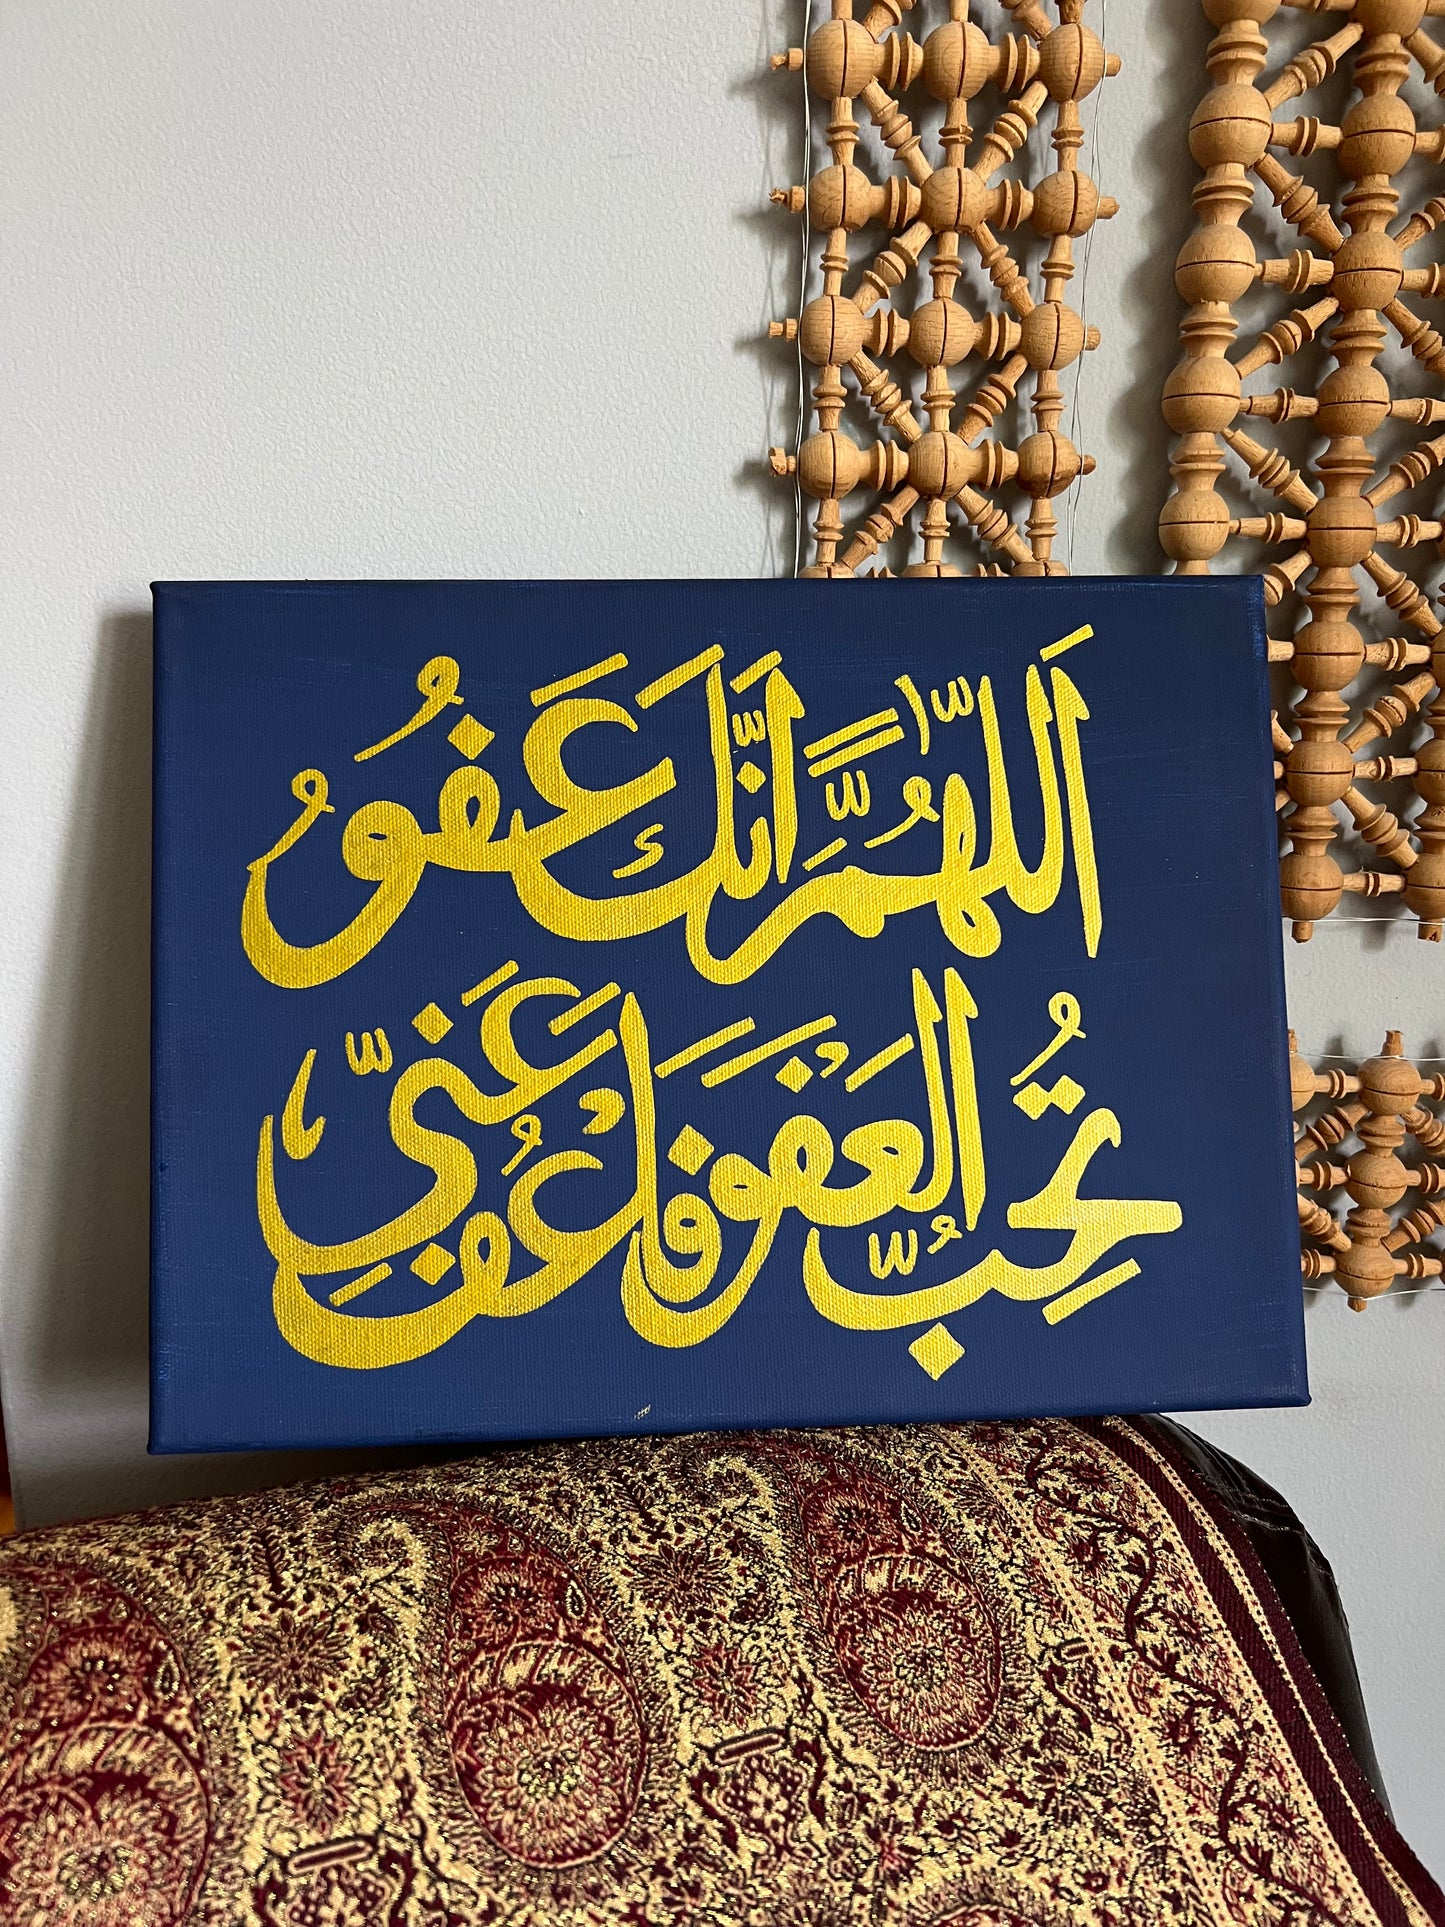 اَللّٰهُمَّ اِنَّكَ عَفُوٌّ
تُحِبُّ الْعَفْوَ فَاعْفُ عَنِّي